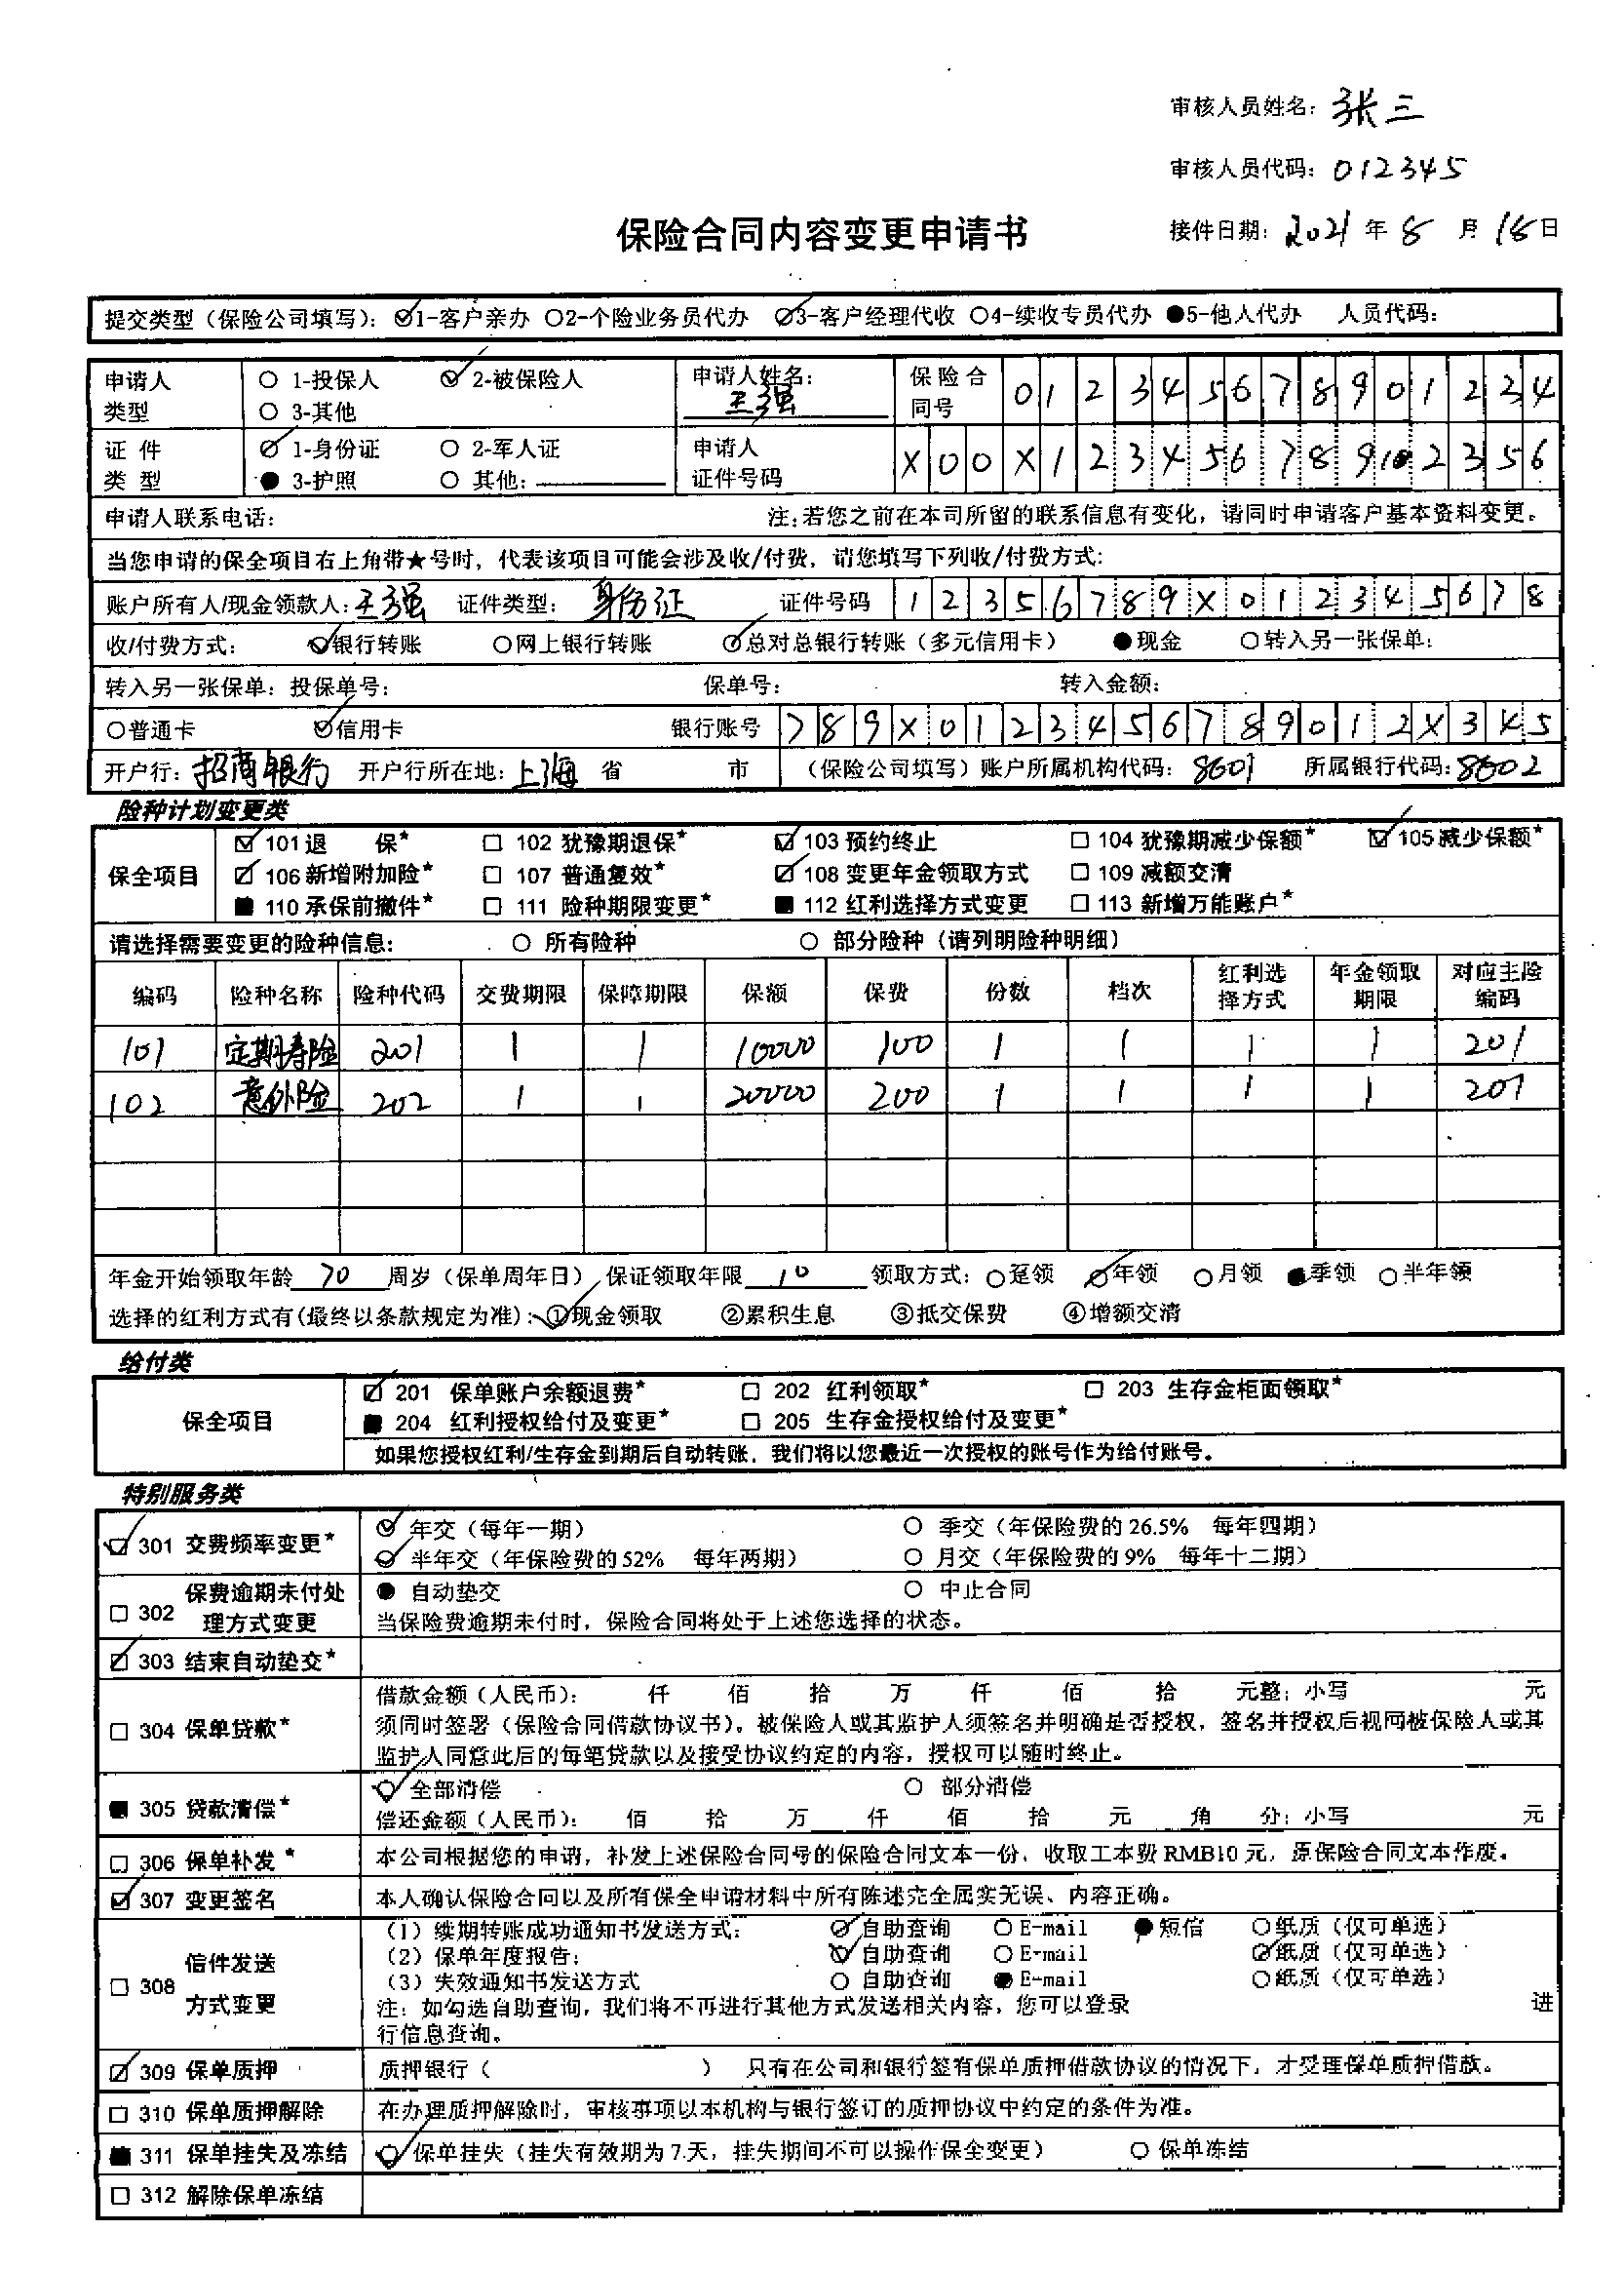 审核人员姓名：张三
审核人员代码：012345
保险合同内容变更申请书
接件日期：2021年8月16日
提交类型（保险公司填写）：☑1-客户亲办 ○2-个险业务员代办 ☑3-客户经理代收 ○4-续收专员代办 ●5-他人代办 人员代码：
申请人类型 ○ 1-投保人 ☑ 2-被保险人 ○ 3-其他 申请人姓名：王强 保险合同号 012345678901234
证件类型 ☑ 1-身份证 ○ 2-军人证 ● 3-护照 ○ 其他： 申请人证件号码 X00X123456789102356
申请人联系电话： 注：若您之前在本司所留的联系信息有变化，请同时申请客户基本资料变更。
当您申请的保全项目右上角带★号时，代表该项目可能会涉及收/付费，请您填写下列收/付费方式：
账户所有人/现金领款人：王强 证件类型：身份证 证件号码 12356789X012345678
收/付费方式： ☑银行转账 ○网上银行转账 ☑总对总银行转账（多元信用卡） ●现金 ○转入另一张保单：
转入另一张保单：投保单号： 保单号： 转入金额：
○普通卡 ☑信用卡 银行账号 789X0123456789012X345
开户行：招商银行 开户行所在地：上海 省 市 （保险公司填写）账户所属机构代码：8601 所属银行代码：8602
险种计划变更类
保全项目
☑ 101 退 保* □ 102 犹豫期退保* ☑ 103 预约终止 □ 104 犹豫期减少保额* ☑ 105 减少保额*
☑ 106 新增附加险* □ 107 普通复效* ☑ 108 变更年金领取方式 □ 109 减额交清
■ 110 承保前撤件* □ 111 险种期限变更* ■ 112 红利选择方式变更 □ 113 新增万能账户*
请选择需要变更的险种信息： ○ 所有险种 ○ 部分险种（请列明险种明细）
编码 险种名称 险种代码 交费期限 保障期限 保额 保费 份数 档次 红利选择方式 年金领取期限 对应主险编码
101 定期寿险 201 1 1 10000 100 1 1 1 1 201
102 意外险 202 1 1 20000 200 1 1 1 1 201
年金开始领取年龄 70 周岁（保单周年日） 保证领取年限 10 领取方式：○趸领 ☑年领 ○月领 ●季领 ○半年领
选择的红利方式有(最终以条款规定为准)：①现金领取 ②累积生息 ③抵交保费 ④增额交清
给付类
保全项目
☑ 201 保单账户余额退费* □ 202 红利领取* □ 203 生存金柜面领取*
■ 204 红利授权给付及变更* □ 205 生存金授权给付及变更*
如果您授权红利/生存金到期后自动转账，我们将以您最近一次授权的账号作为给付账号。
特别服务类
☑ 301 交费频率变更* ☑ 年交（每年一期） ○ 季交（年保险费的26.5% 每年四期）
☑ 半年交（年保险费的52% 每年两期） ○ 月交（年保险费的9% 每年十二期）
□ 302 保费逾期未付处理方式变更 ● 自动垫交 ○ 中止合同
当保险费逾期未付时，保险合同将处于上述您选择的状态。
☑ 303 结束自动垫交*
□ 304 保单贷款* 借款金额（人民币）： 仟 佰 拾 万 仟 佰 拾 元整；小写 元
须同时签署（保险合同借款协议书）。被保险人或其监护人须签名并明确是否授权，签名并授权后视同被保险人或其
监护人同意此后的每笔贷款以及接受协议约定的内容，授权可以随时终止。
■ 305 贷款清偿* ☑ 全部清偿 ○ 部分清偿
偿还金额（人民币）： 佰 拾 万 仟 佰 拾 元 角 分；小写 元
□ 306 保单补发* 本公司根据您的申请，补发上述保险合同号的保险合同文本一份，收取工本费RMB10元，原保险合同文本作废。
☑ 307 变更签名 本人确认保险合同以及所有保全申请材料中所有陈述完全属实无误、内容正确。
□ 308 信件发送方式变更
（1）续期转账成功通知书发送方式： ☑自助查询 ○E-mail ●短信 ○纸质（仅可单选）
（2）保单年度报告： ☑自助查询 ○E-mail ☑纸质（仅可单选）
（3）失效通知书发送方式 ○ 自助查询 ●E-mail ○纸质（仅可单选）
注：如勾选自助查询，我们将不再进行其他方式发送相关内容，您可以登录 进
行信息查询。
☑ 309 保单质押 质押银行（ ） 只有在公司和银行签有保单质押借款协议的情况下，才受理保单质押借款。
□ 310 保单质押解除 在办理质押解除时，审核事项以本机构与银行签订的质押协议中约定的条件为准。
■ 311 保单挂失及冻结 ☑ 保单挂失（挂失有效期为7天，挂失期间不可以操作保全变更） ○ 保单冻结
□ 312 解除保单冻结